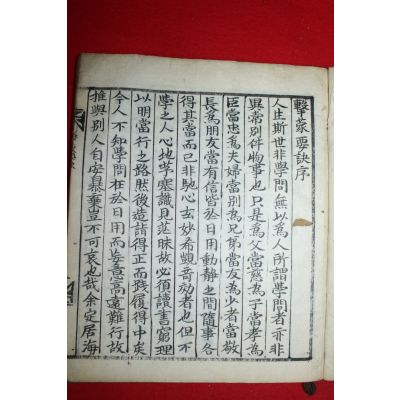 擊蒙要訣序
人生斯世非學問無以爲人所謂學問者亦非
異常別件物事也只是爲父當慈爲子當孝爲
臣當忠爲夫婦當別爲兄弟當友爲少者當敬
長爲朋友當有信皆於日用動靜之間隨事各
得其當而已非馳心玄妙希覬奇效者也但不
學之人心地茅塞識見茫昧故必須讀書窮理
以明當行之路然後造詣得正而踐履得中矣
今人不知學問在於日用而妄意高遠難行故
推與別人自安暴棄豈不可哀也哉余定居海